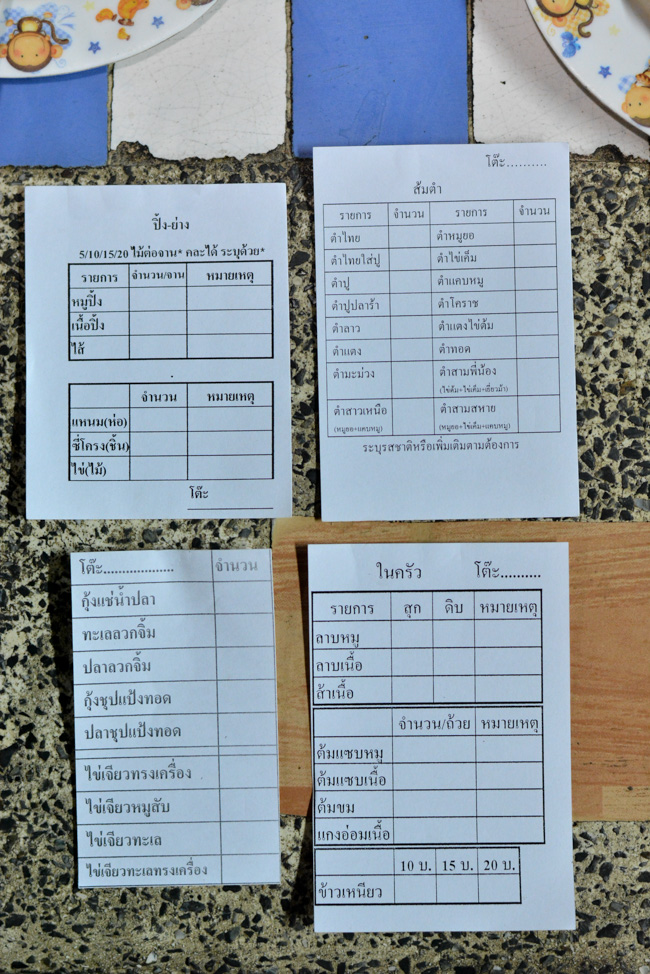 ปิ้ง-ย่าง
5/10/15/20 ไม้ต่อจาน* คละได้ ระบุด้วย*
รายการ จำนวน/จาน หมายเหตุ
หมูปิ้ง
เนื้อปิ้ง
ไส้
จำนวน หมายเหตุ
แหนม(ห่อ)
ซี่โครง(ชิ้น)
ไข่(ไม้)
โต๊ะ
โต๊ะ..........
ส้มตำ
รายการ จำนวน รายการ จำนวน
ตำไทย ตำหมูยอ
ตำไทยใส่ปู ตำไข่เค็ม
ตำปู ตำแคบหมู
ตำปูปลาร้า ตำโคราช
ตำลาว ตำแตงไข่ต้ม
ตำแตง ตำทอด
ตำมะม่วง ตำสามพี่น้อง
(ไข่ต้ม+ไข่เค็ม+เยี่ยวม้า)
ตำสาวเหนือ ตำสามสหาย
(หมูยอ+แคบหมู) (หมูยอ+ไข่เค็ม+แคบหมู)
ระบุรสชาติหรือเพิ่มเติมตามต้องการ
โต๊ะ................... จำนวน
กุ้งแช่น้ำปลา
ทะเลลวกจิ้ม
ปลาลวกจิ้ม
กุ้งชุปแป้งทอด
ปลาชุปแป้งทอด
ไข่เจียวทรงเครื่อง
ไข่เจียวหมูสับ
ไข่เจียวทะเล
ไข่เจียวทะเลทรงเครื่อง
ในครัว โต๊ะ..........
รายการ สุก ดิบ หมายเหตุ
ลาบหมู
ลาบเนื้อ
ส้าเนื้อ
จำนวน/ถ้วย หมายเหตุ
ต้มแซบหมู
ต้มแซบเนื้อ
ต้มขม
แกงอ่อมเนื้อ
10 บ. 15 บ. 20 บ.
ข้าวเหนียว